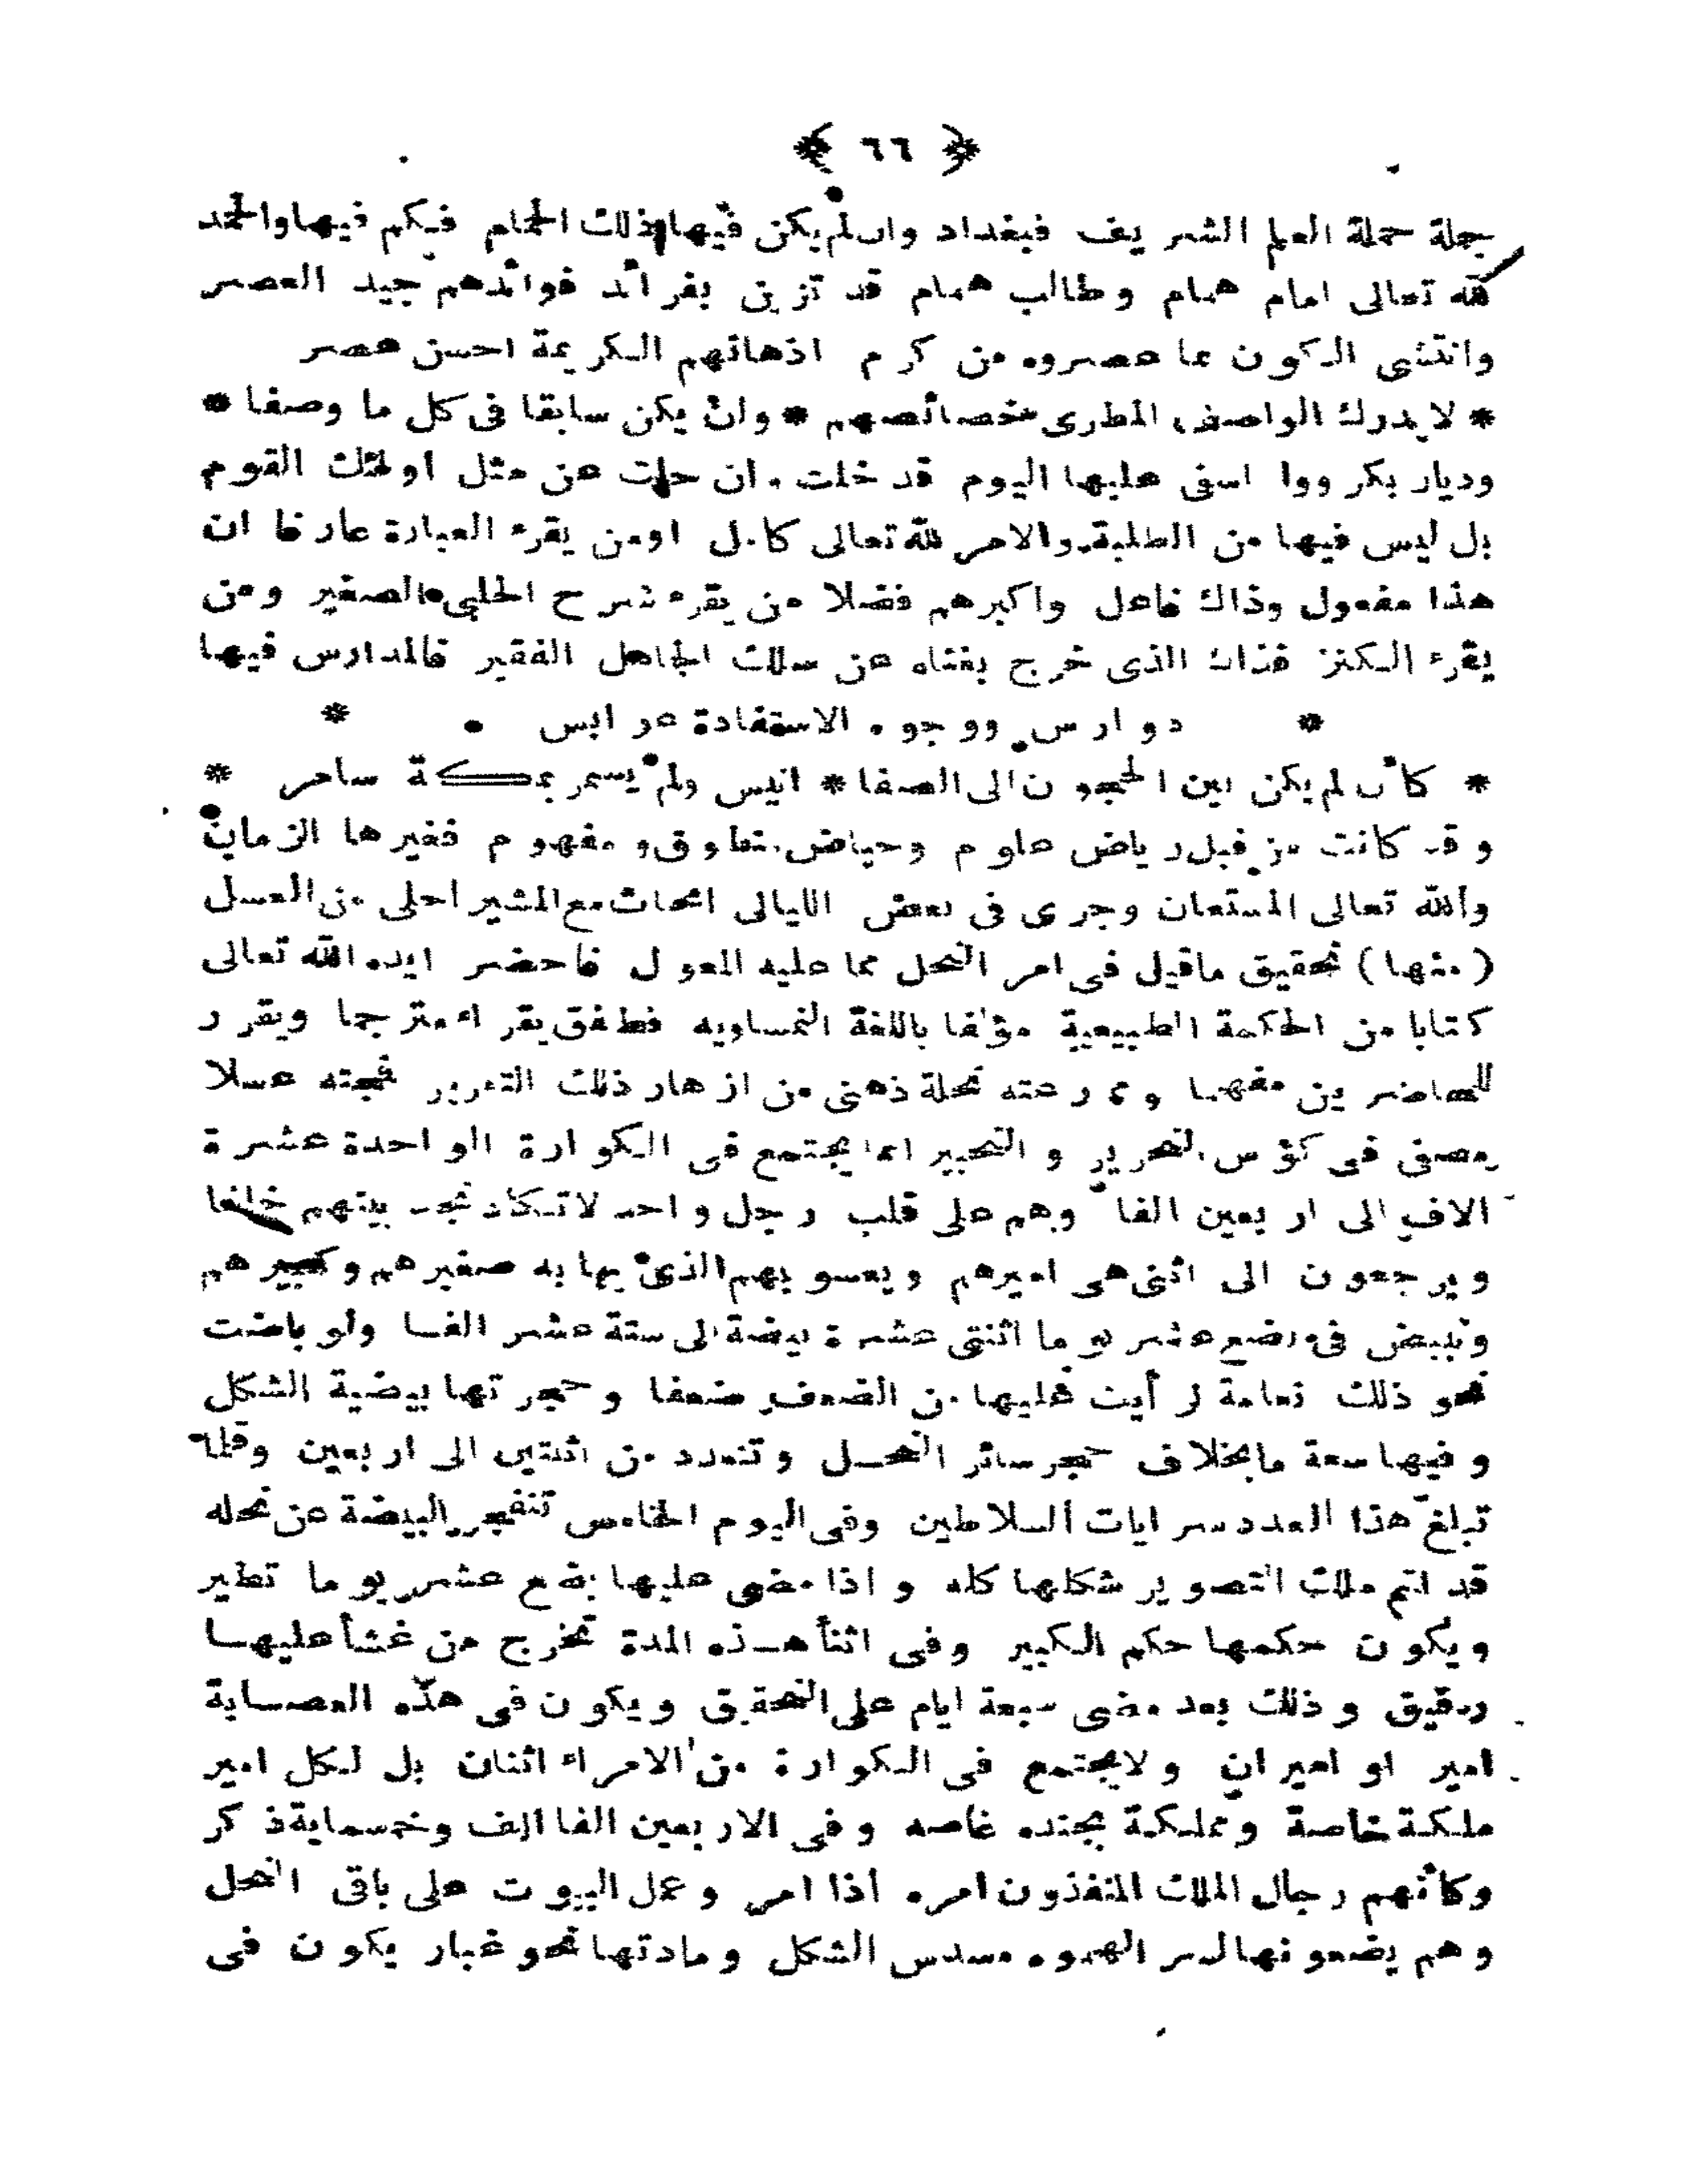 ﴿ ٦٦ ﴾
جلة حملة العلم الشريف فبغداد وان لم يكن فيها ذلك الحمام فبكم فيها والحمد
لله تعالى امام همام وطالب همام قد تزين بفرائد فوائدهم جيد العصر
وانتشى الكون مما عصروه من كرم اذهانهم الكريمة احسن عصر
* لا يدرك الواصف المطرى خصائصهم * وان يكن سابقا فى كل ما وصفا *
وديار بكر ووا اسفى عليها اليوم قد خلت . ان حلت عن مثل اولئك القوم
بل ليس فيها من الطلبة والامر لله تعالى كامل اومن يقرء العبارة عارفا ان
هذا مفعول وذاك فاعل واكبرهم فضلا من يقرء شرح الحلبى الصغير ومن
يقرء الكنز فذاك الذى خرج بغناه عن سلك الجاهل الفقير فالمدارس فيها
* دوارس ووجوه الاستفادة عوابس *
* كأن لم يكن بين الحجون الى الصفا * انيس ولم يسمر بمكة سامر *
وقد كانت من قبل رياض علوم وحياض منطوق ومفهوم فغيرها الزمان
والله تعالى المستعان وجرى فى بعض الليالى ابحاث مع المشير احلى من العسل
( منها ) تحقيق ماقيل فى امر النحل مما عليه المعول فاحضر ايده الله تعالى
كتابا من الحكمة الطبيعية مؤلفا باللغة النمساويه فطفق يقراء مترجما ويقرر
للحاضرين مفهما ومما رعته نحلة ذهنى من ازهار ذلك التقرير فمجته عسلا
مصفى فى كؤس التحرير والتحبير انما يجتمع فى الكوارة الواحدة عشرة
الاف الى اربعين الفا وهم على قلب رجل واحد لاتكاد تجد بينهم خلفا
ويرجعون الى انثى هى اميرهم ويعسوبهم الذى يهابه صغيرهم وكبيرهم
وتبيض فى بضع عشر يوما اثنتى عشرة بيضة الى ستة عشر الفا ولو باضت
نحو ذلك نعامة لرأيت عليها من الضعف ضعفا وحجرتها بيضية الشكل
وفيها سعة ما بخلاف حجر سائر النحل وتتعدد من اثنتين الى اربعين وقلما
تبلغ هذا العدد سرايات السلاطين وفى اليوم الخامس تنفجر البيضة عن نحله
قد اتم ملك التصوير شكلها كله واذا مضى عليها بضع عشر يوما تطير
ويكون حكمها حكم الكبير وفى اثنأ هذه المدة تخرج من غشأ عليها
رقيق وذلك بعد مضى سبعة ايام على التحقيق ويكون فى هذه العصابة
امير او اميران ولا يجتمع فى الكوارة من الامراء اثنان بل لكل امير
ملكة خاصة ومملكة بجنده غاصه وفى الاربعين الفا الف وخمسماية ذكر
وكأنهم رجال الملك المنفذون امره اذا امر وعمل البيوت على باقى النحل
وهم يضعونها لسر الهموه مسدس الشكل ومادتها نحو غبار يكون فى